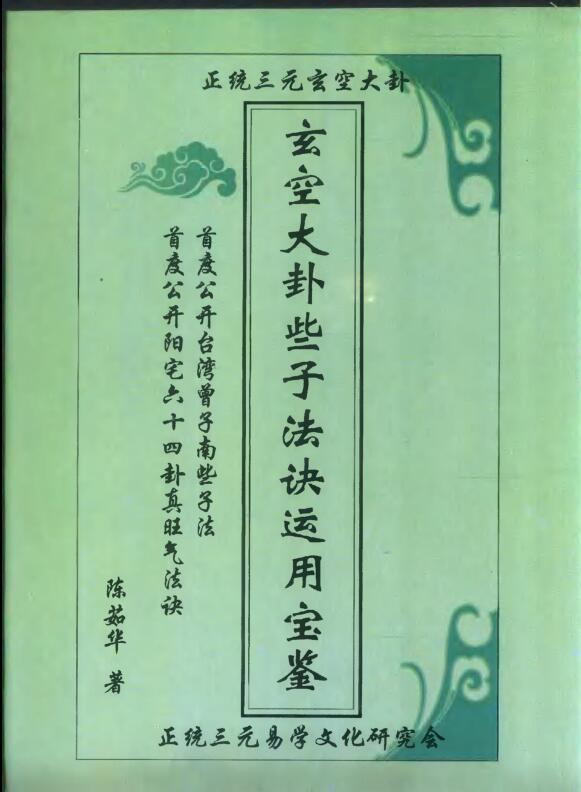 正统三元玄空大卦
玄空大卦些子法诀运用宝鉴
首度公开台湾曾子南些子法
首度公开阳宅六十四卦真旺气法诀
陈茹华 著
正统三元易学文化研究会